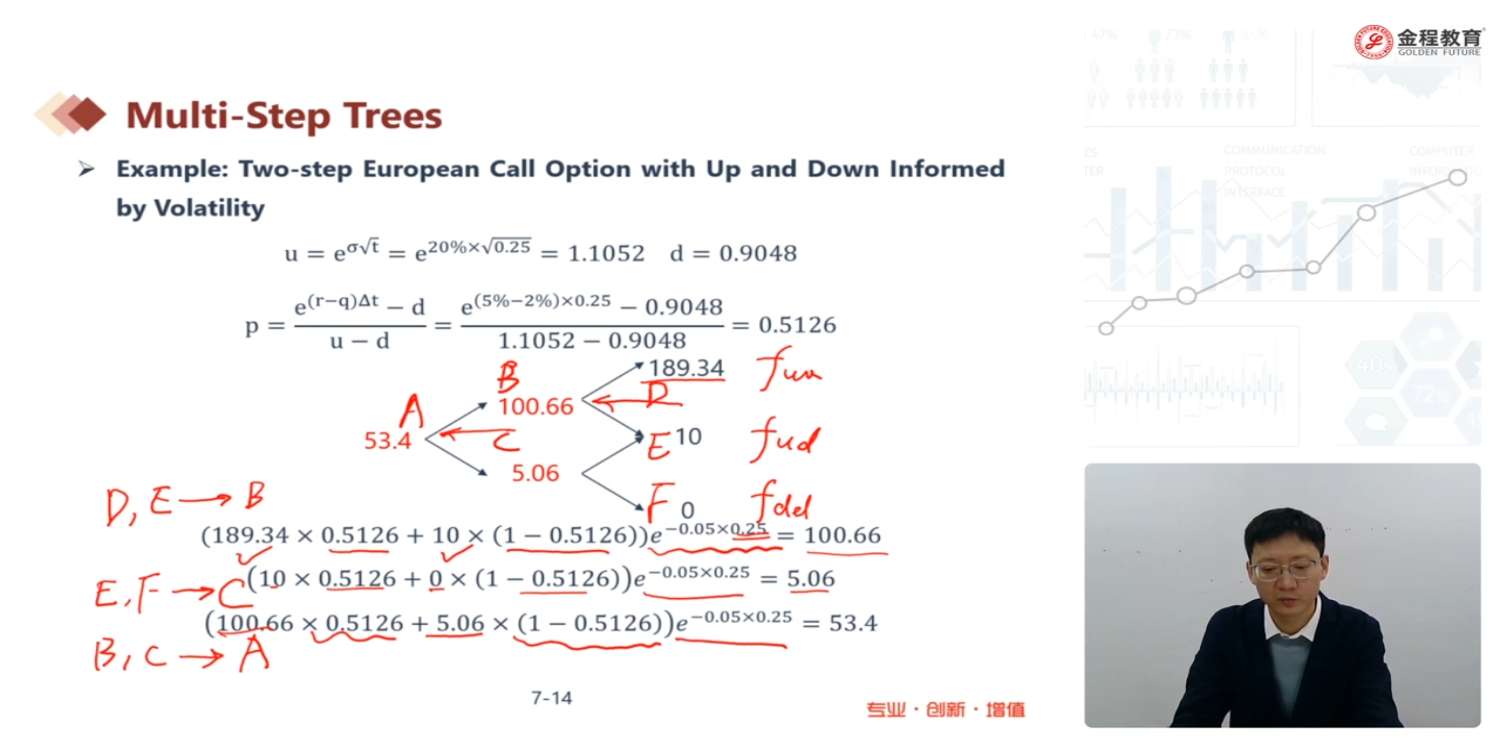 金程教育
GOLDEN FUTURE
Multi-Step Trees
➢ Example: Two-step European Call Option with Up and Down Informed
by Volatility
u = e^{σ√t} = e^{20%×√0.25} = 1.1052 d = 0.9048
p = (e^{(r−q)Δt} − d)/(u − d) = (e^{(5%−2%)×0.25} − 0.9048)/(1.1052 − 0.9048) = 0.5126
189.34 fuu
B
100.66 D
A
53.4 C
E 10 fud
5.06
F 0 fdd
D, E → B
(189.34 × 0.5126 + 10 × (1 − 0.5126))e^{−0.05×0.25} = 100.66
E, F → C (10 × 0.5126 + 0 × (1 − 0.5126))e^{−0.05×0.25} = 5.06
(100.66 × 0.5126 + 5.06 × (1 − 0.5126))e^{−0.05×0.25} = 53.4
B, C → A
7-14
专业·创新·增值
COMMUNICATION
PROTOCOL
INTERFACE
COMPUTER
40%
72%